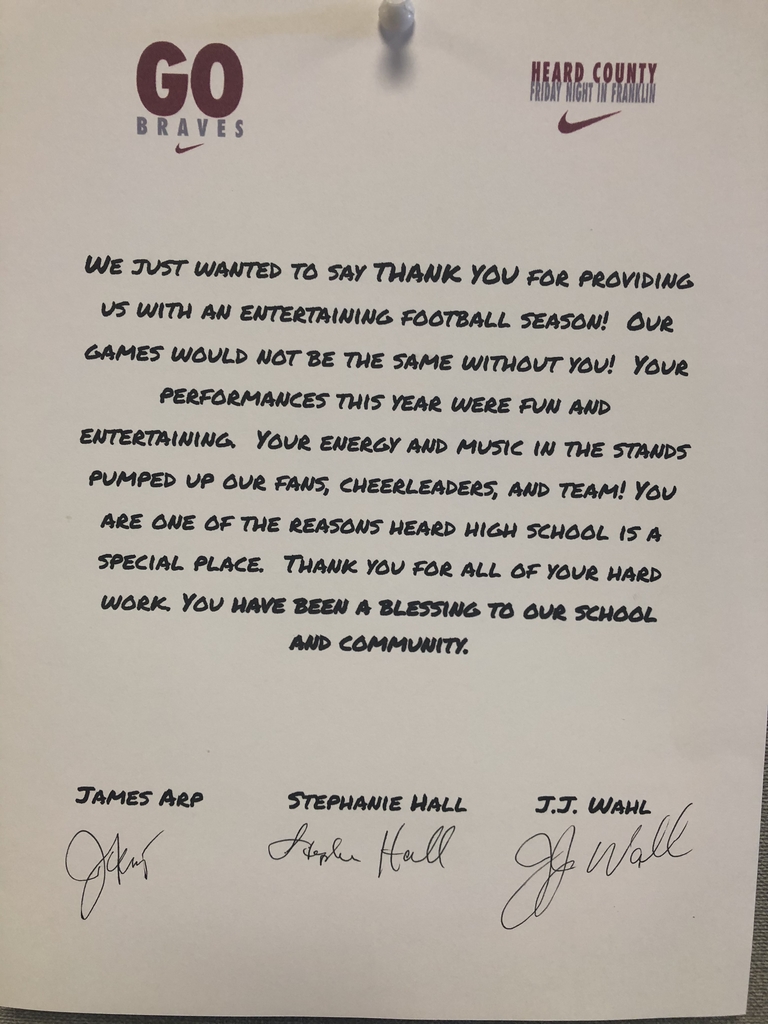 GO
BRAVES
HEARD COUNTY
FRIDAY NIGHT IN FRANKLIN
WE JUST WANTED TO SAY THANK YOU FOR PROVIDING
US WITH AN ENTERTAINING FOOTBALL SEASON! OUR
GAMES WOULD NOT BE THE SAME WITHOUT YOU! YOUR
PERFORMANCES THIS YEAR WERE FUN AND
ENTERTAINING. YOUR ENERGY AND MUSIC IN THE STANDS
PUMPED UP OUR FANS, CHEERLEADERS, AND TEAM! YOU
ARE ONE OF THE REASONS HEARD HIGH SCHOOL IS A
SPECIAL PLACE. THANK YOU FOR ALL OF YOUR HARD
WORK. YOU HAVE BEEN A BLESSING TO OUR SCHOOL
AND COMMUNITY.
JAMES ARP STEPHANIE HALL J.J. WAHL
Hall JJ Wahl